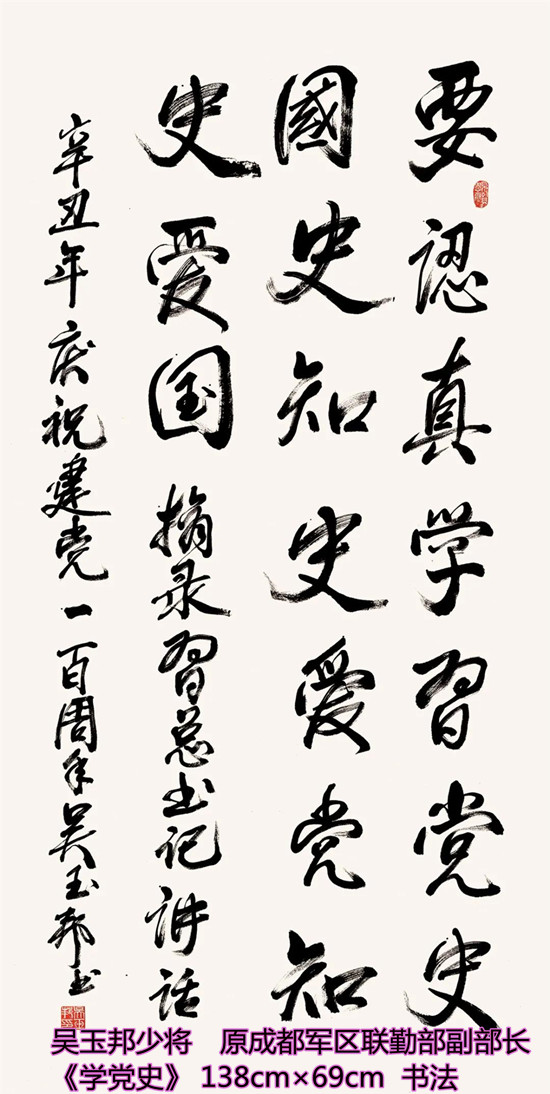 要認真学習党史
國史知史爱党知
史爱国 摘录習总书记讲话
辛丑年庆祝建党一百周年吴玉邦书
吴玉邦少将 原成都军区联勤部副部长
《学党史》 138cm×69cm 书法